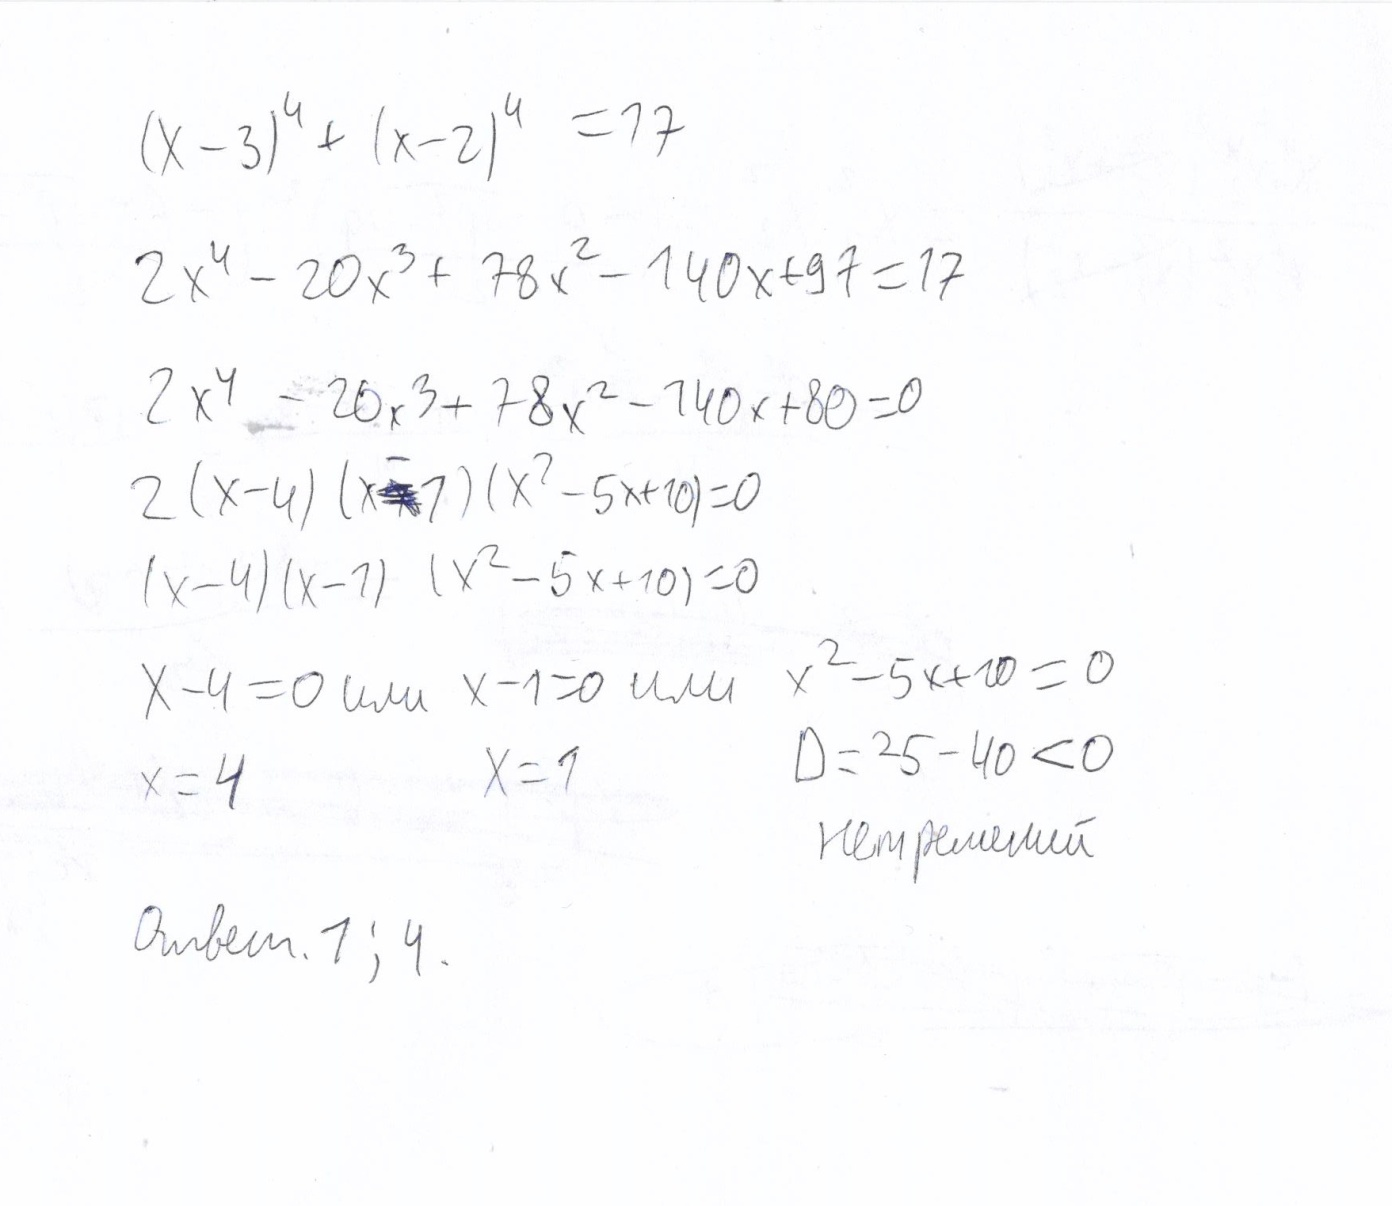 (x-3)⁴ + (x-2)⁴ = 17
2x⁴ - 20x³ + 78x² - 140x + 97 = 17
2x⁴ - 20x³ + 78x² - 140x + 80 = 0
2(x-4)(x-1)(x² - 5x + 10) = 0
(x-4)(x-1) (x² - 5x + 10) = 0
x-4=0 или x-1=0 или x² - 5x + 10 = 0
x = 4 x = 1 D = 25 - 40 < 0
нет решений
Ответ. 1; 4.